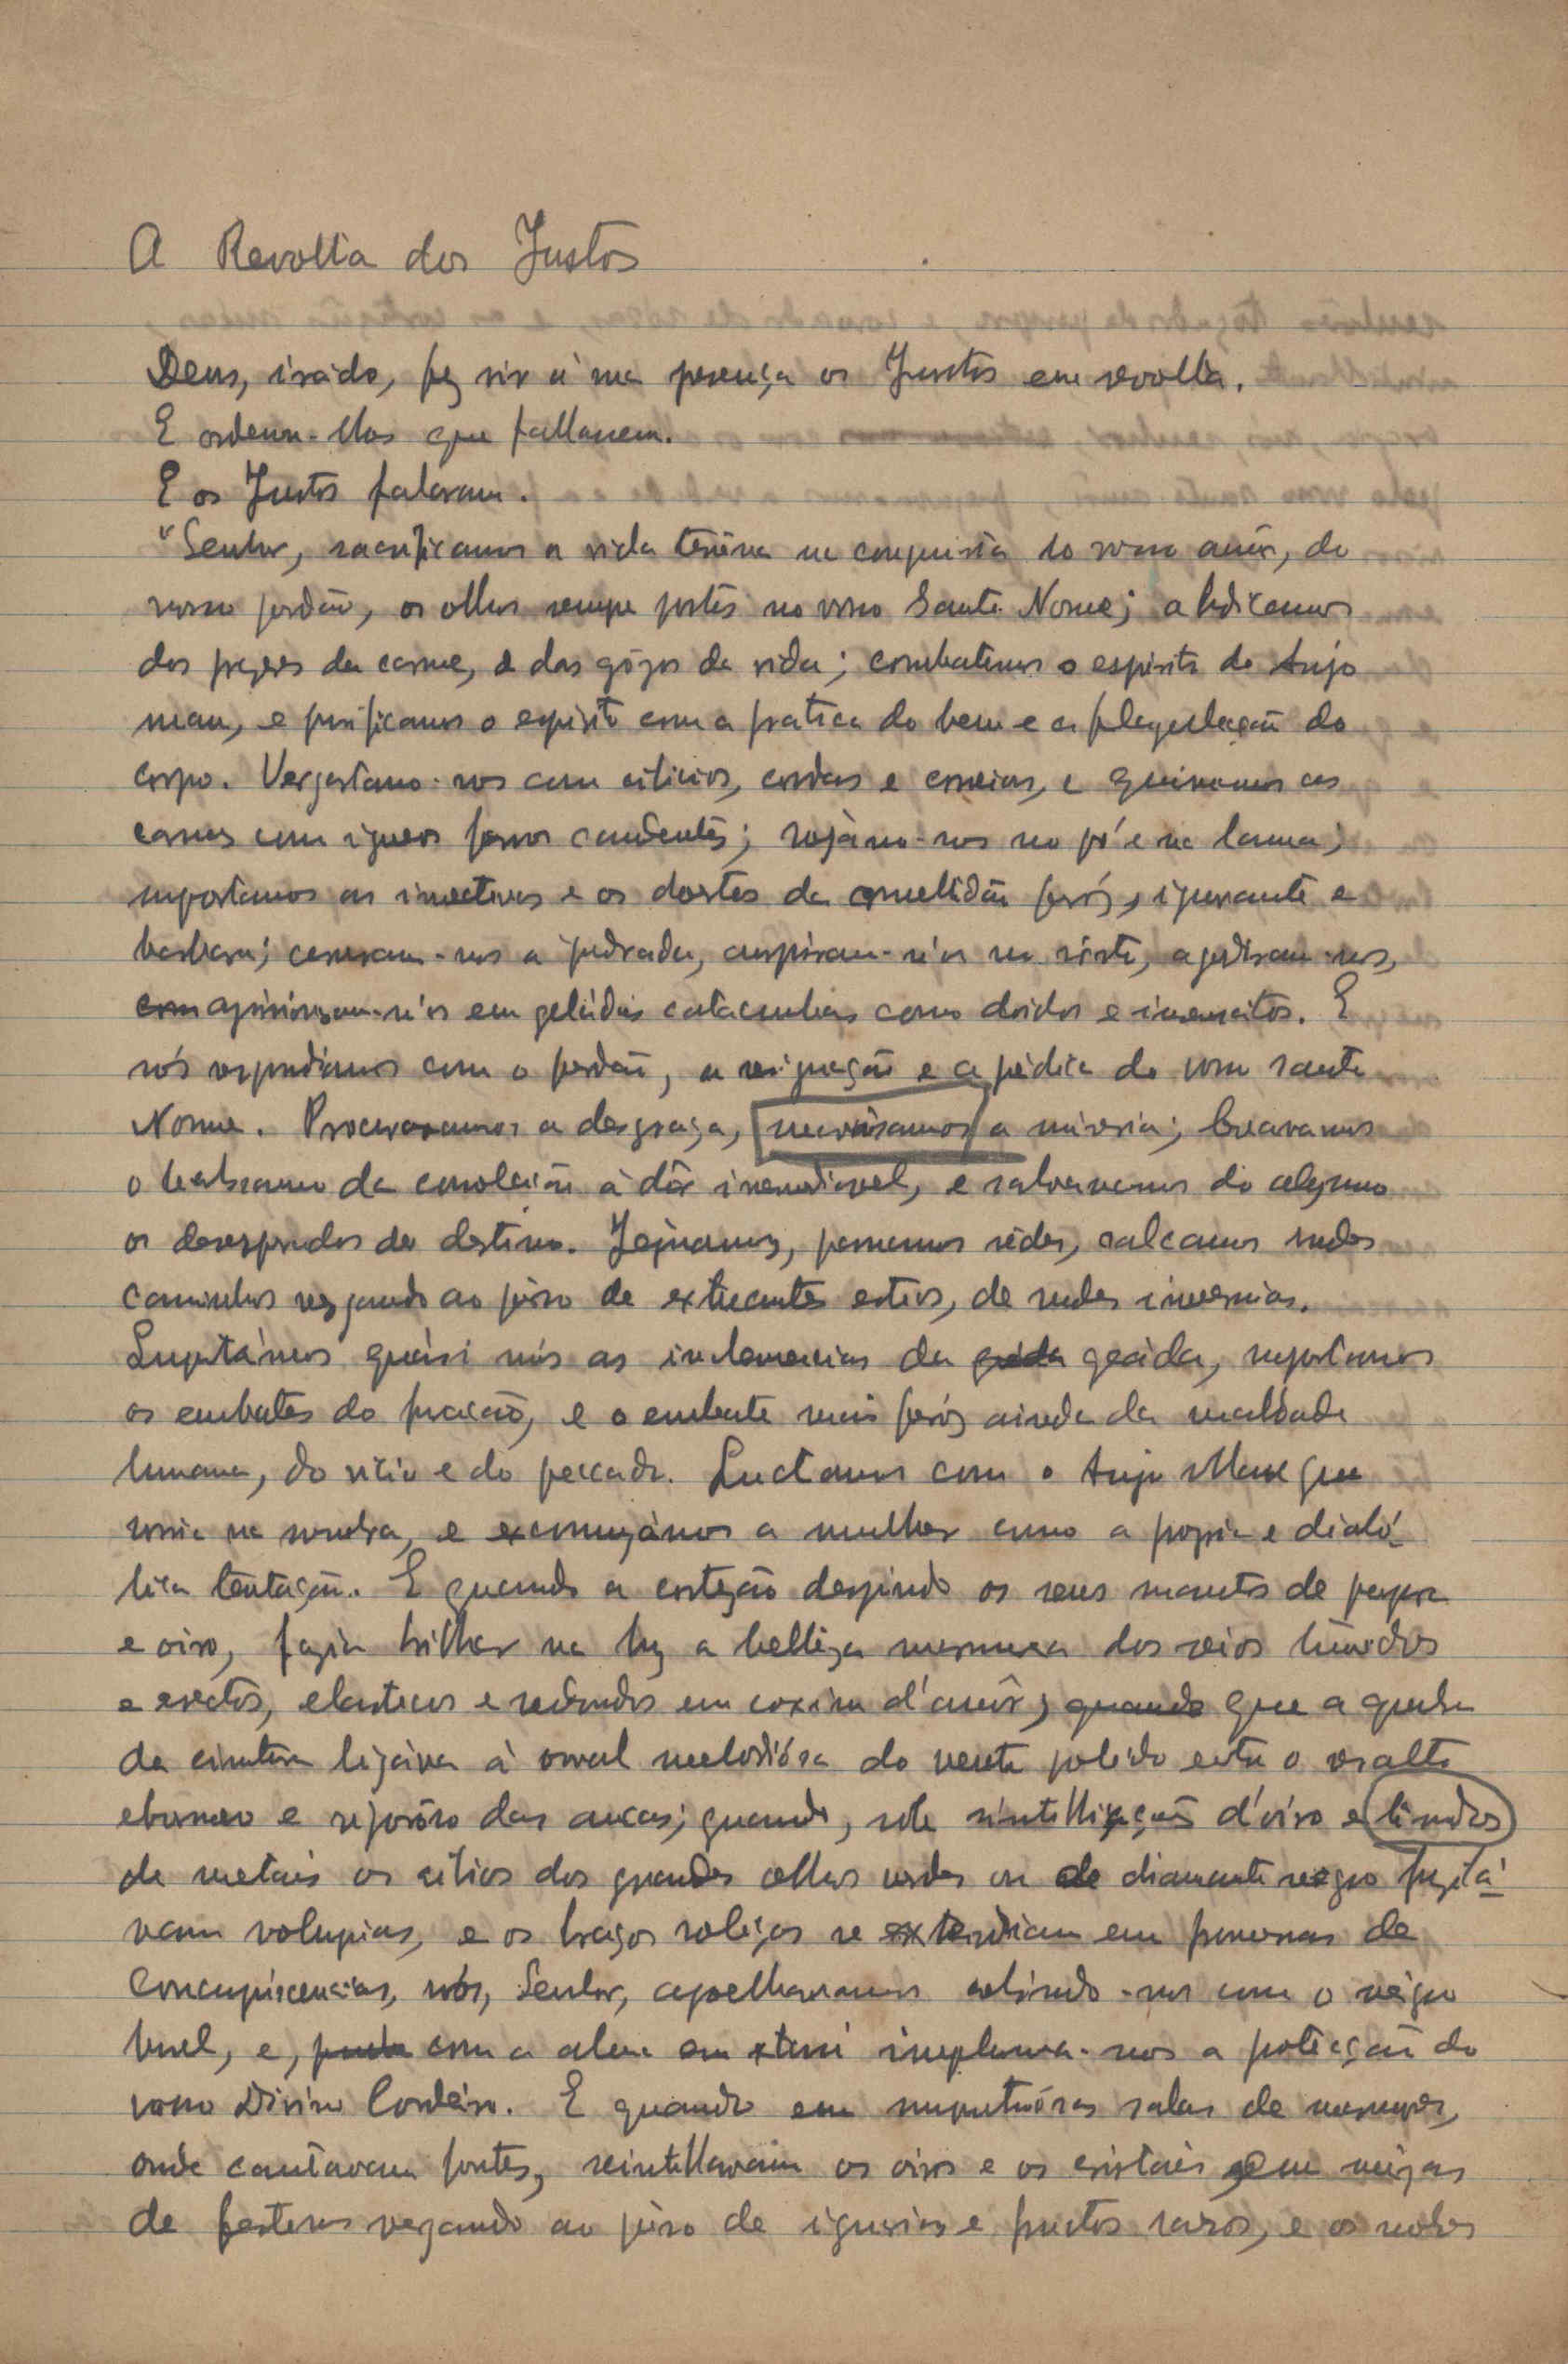 A Revolta dos Justos
Deus, irado, fez vir á sua presença os Justos em revolta.
E ordenou-lhes que fallassem.
E os Justos falaram.
"Senhor, sacrificamos a vida terrêna na conquista do vosso amôr, do
vosso perdão, os olhos sempre postos no vosso Santo Nome; abdicamos
dos prazeres da carne, e dos gôzos da vida; combatemos o espirito do Anjo
mau, e purificamos o espirito com a pratica do bem e a flagellação do
corpo. Vergastamo-nos com cilicios, cordas e correias, e queimamos as
carnes com igneos ferros candentes; rojámo-nos no pó e na lama;
suportamos as invectivas e os doestos da multidão feróz, ignorante e
barbara; correram-nos a pedrada, cuspiram-nos no rosto, agrediram-nos,
aprisionaram-nos em gelidas catacumbas como doidos e insensatos. E
nós respondiamos com o perdão, a resignação e a prédica do vosso santo
Nome. Procuravamos a desgraça, a miseria; levavamos
o balsamo da consolação à dôr irremediavel, e salvavamos do abysmo
os desesperados do destino. Jejuamos, passamos sêdes, calcamos rudes
caminhos vergando ao pêso de extuantes estios, de rudes invernias.
Suportámos quási nús as inclemencias da geáda, suportamos
os embates do furacão, e o embate mais feróz ainda da maldade
humana, do vicio e do peccado. Luctamos com o Anjo Mau que
sorria na sombra, e excomungámos a mulher como a propria e diabó-
lica tentação. E quando a cortezão despindo os seus mantos de purpura
e oiro, fazia brilhar na luz a belleza marmorea dos seios túmidos
e erectos, elasticos e redondos em coxim d'amôr; que a quebra
da cintura ligáva à oval melodiósa do ventre polido entre o resalto
eburneo e vigorôso das ancas; quando, sob sintillações d'oiro e lindos
de metais os cilios dos grandes olhos verdes ou de diamante negro
volupias, e os braços roliços se extendiam em promessas de
concupiscencias, nós, Senhor, ajoelhavamos cobrindo-nos com o négro
burel, e, com a alma em extasi imploravamos a protecção do
vosso Divino Cordeiro. E quando em sumptuósas salas de marmores,
onde cantavam fontes, scintillavam os oiros e os cristais em mêsas
de festins vergando ao pêso de iguarias e fructos raros, e os nobres